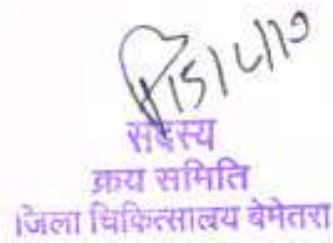 सदस्य
क्रय समिति
जिला चिकित्सालय बेमेतरा